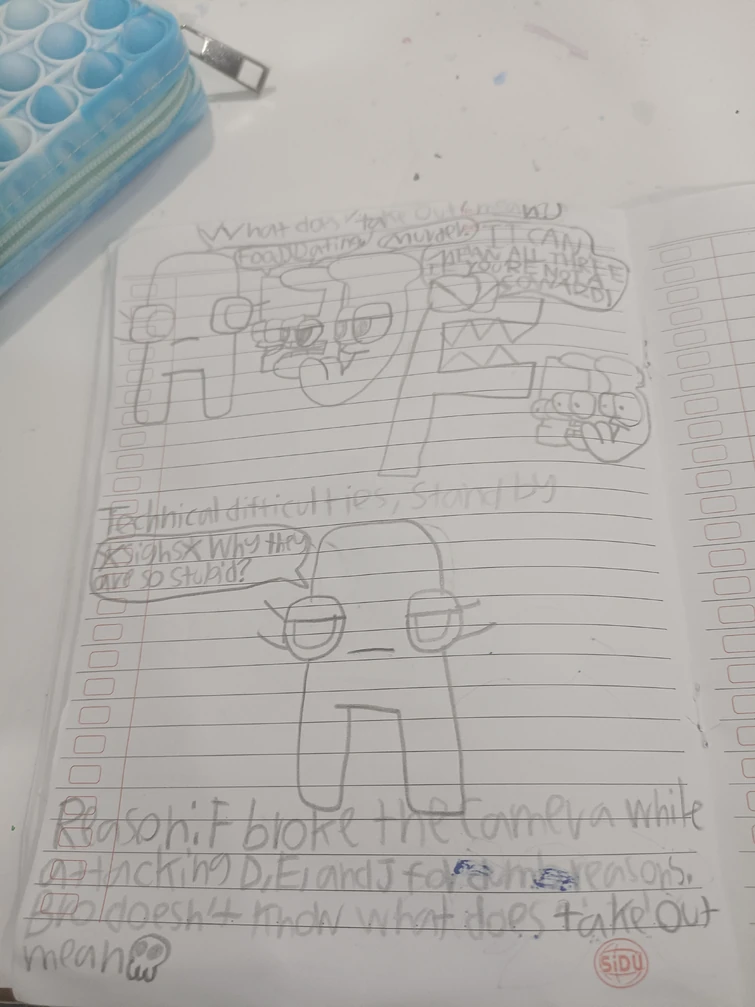 What does "take out" mean
Food Dating Murder IT CAN
MEAN ALL THREE
YOU'RE NOT A
COWARD!
Technical difficulties, Stand by
*sighs* Why they
are so stupid?
Reason: F broke the camera while
attacking D, E, and J for dumb reasons.
Bro doesn't know what does take out
mean💀
SiDU